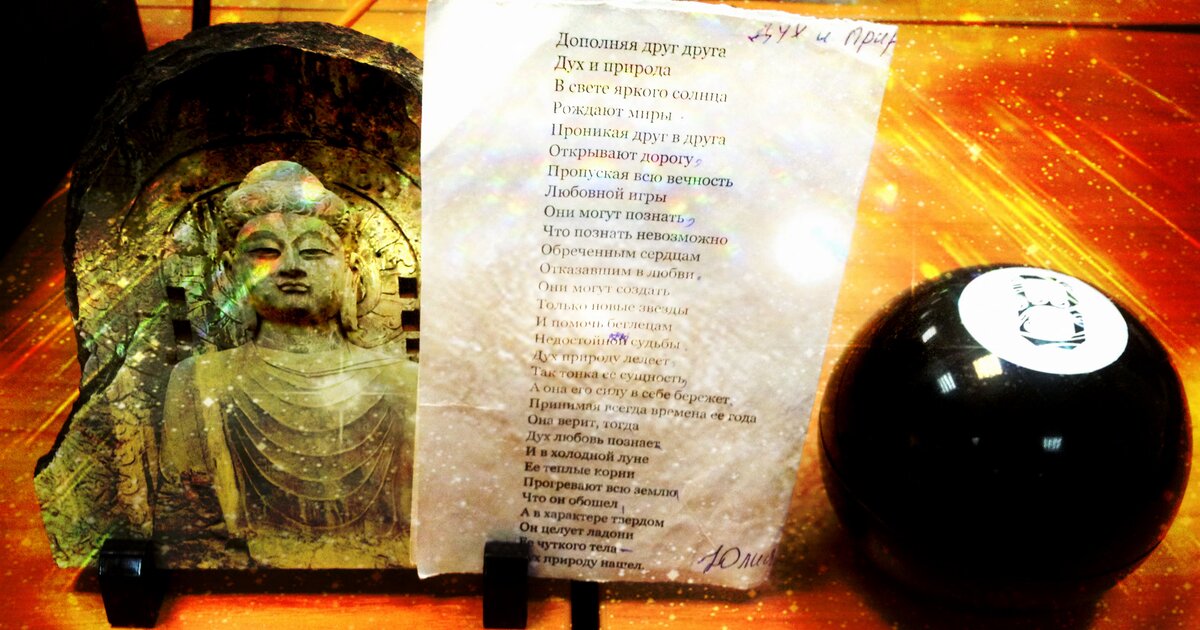 Дух и
Дополняя друг друга
Дух и природа
В свете яркого солнца
Рождают миры
Проникая друг в друга
Открывают дорогу,
Пропуская всю вечность
Любовной игры
Они могут познать,
Что познать невозможно
Обреченным сердцам
Отказавшим в любви.
Они могут создать
Только новые звезды
И помочь беглецам
Недостойной судьбы
Дух природу лелеет
Так тонка ее сущность,
А она его силу в себе бережет,
Принимая всегда времена ее года
Она верит, тогда
Дух любовь познает,
И в холодной луне
Ее теплые корни
Прогревают всю землю,
Что он обошел,
А в характере твердом
Он целует ладони
Ее чуткого тела –
природу нашел.